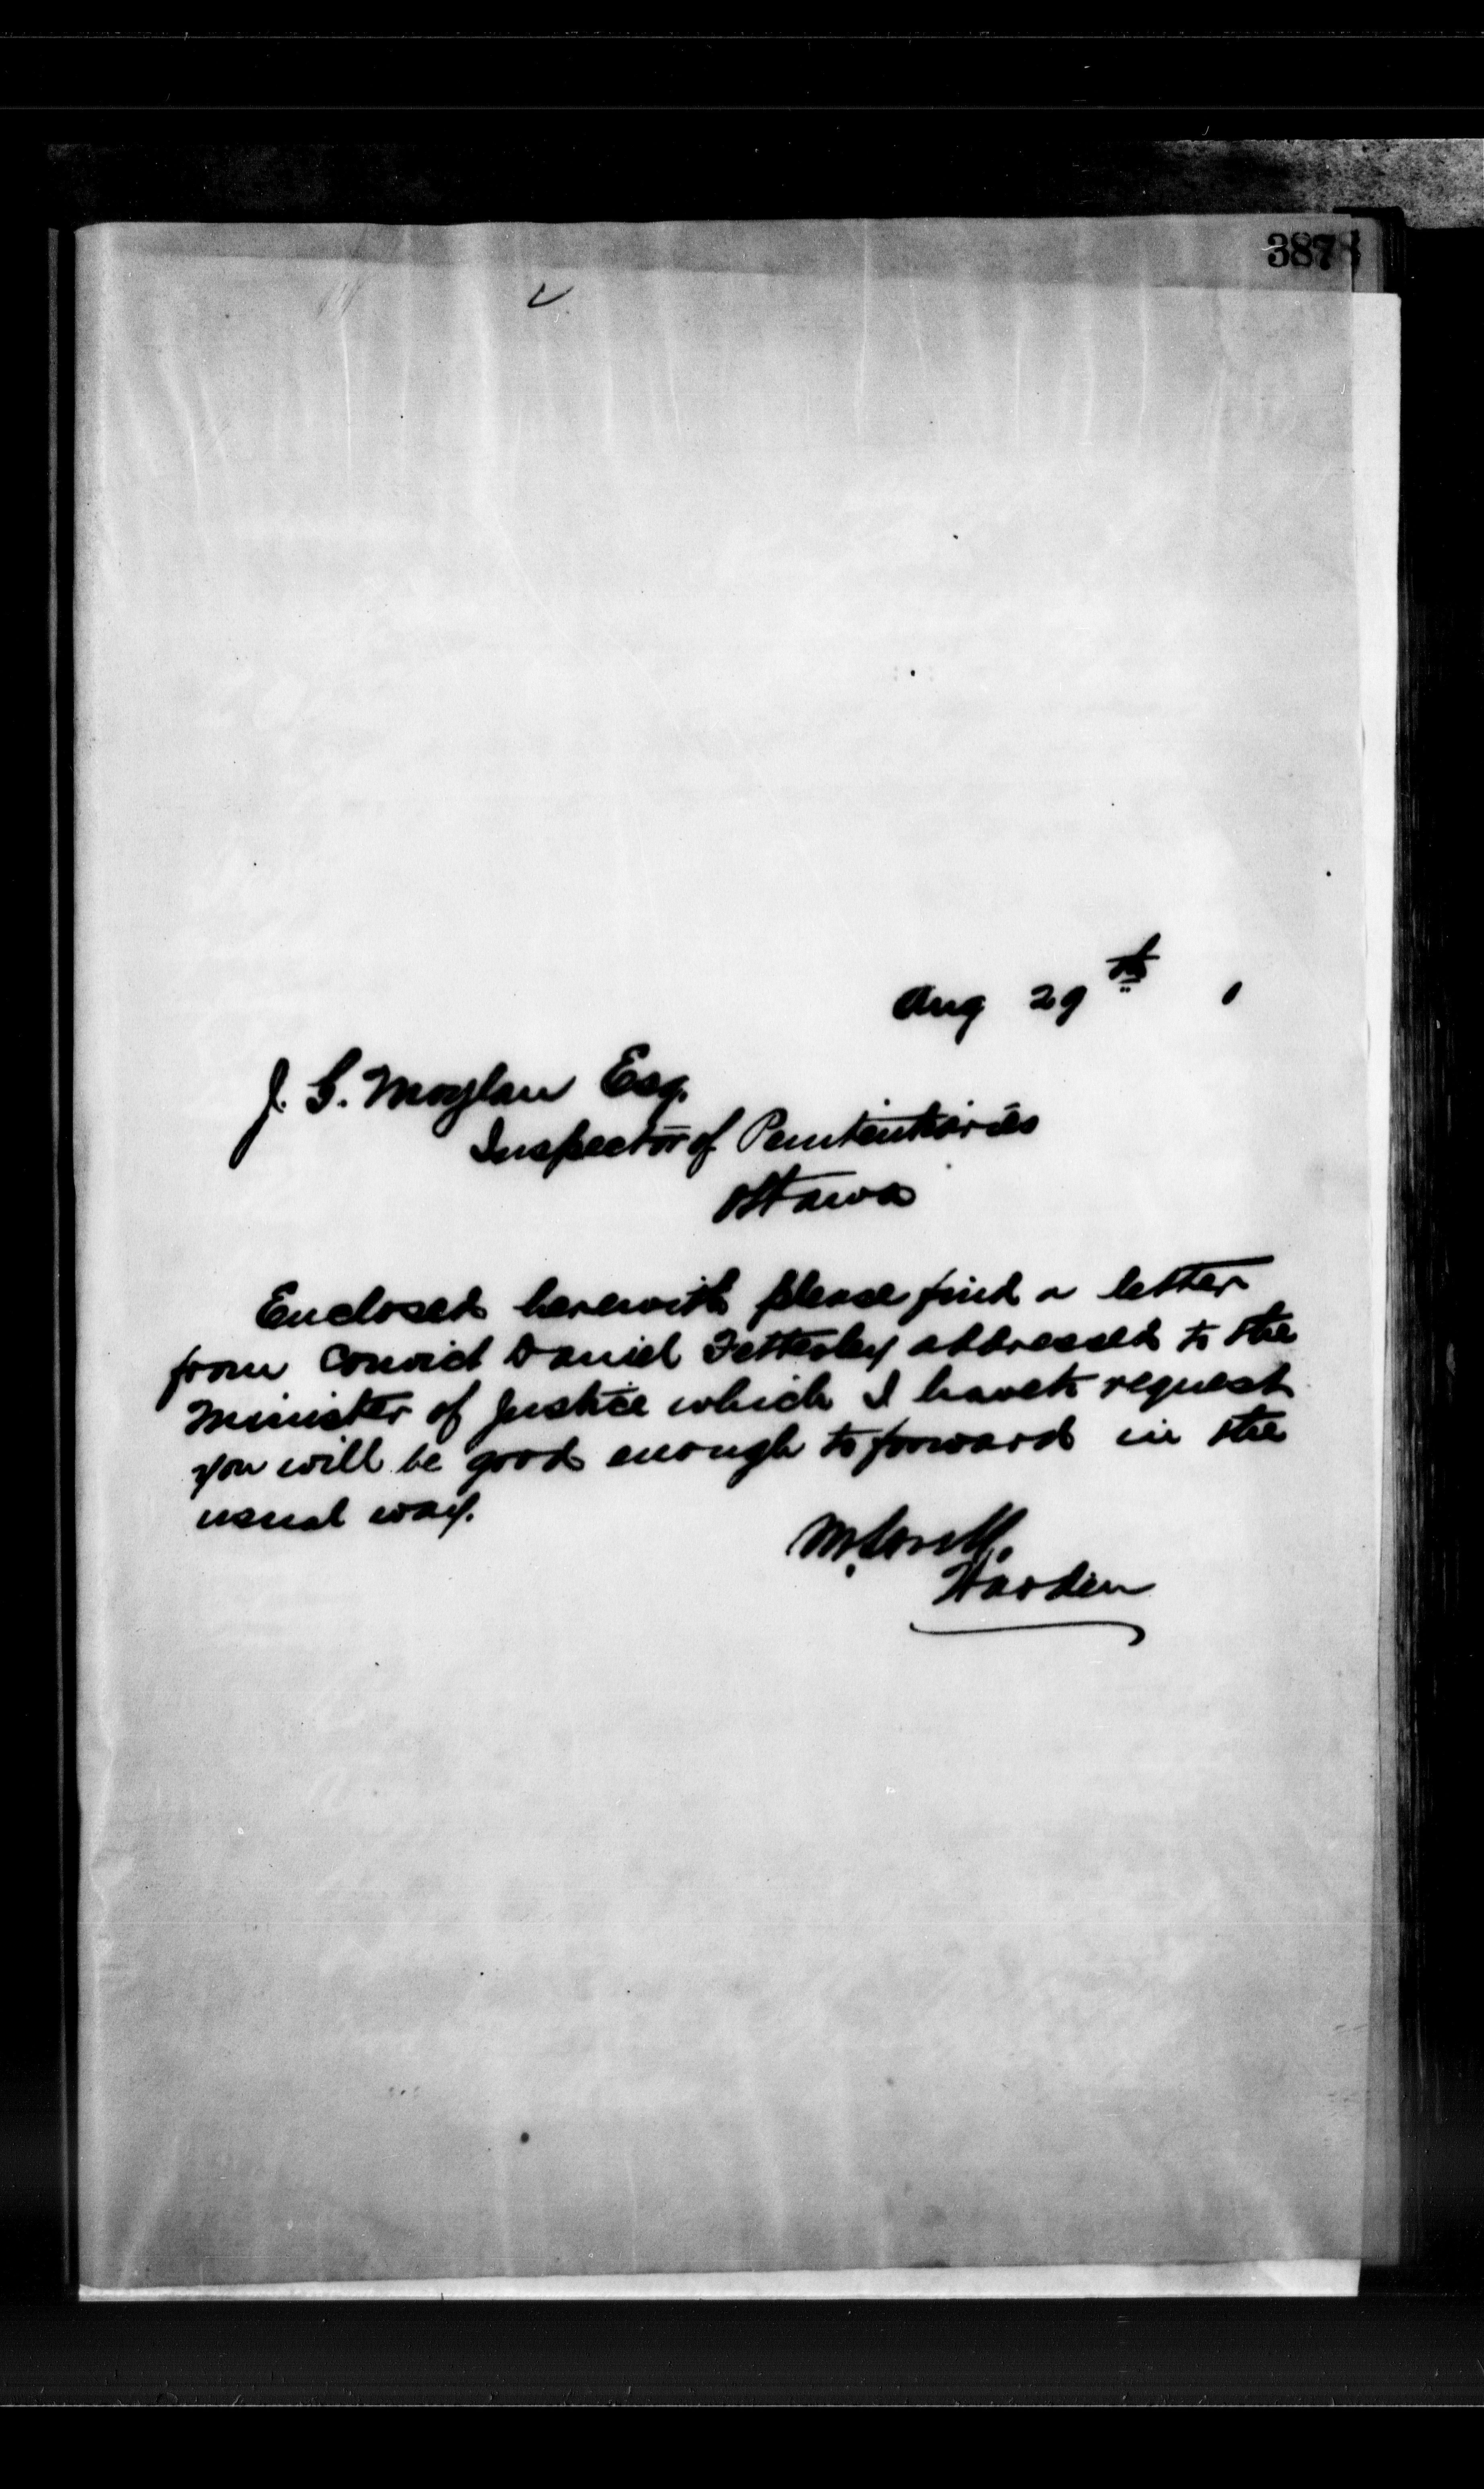 387
Aug 29th 1
J. G. Moylan Esq.
Inspector of Penitentiaries
Ottawa
Enclosed herewith please find a letter
from Convict Daniel Fetterley addressed to the
Minister of Justice which I have to request
you will be good enough to forward in the
usual way.
M. Lavell.
Warden